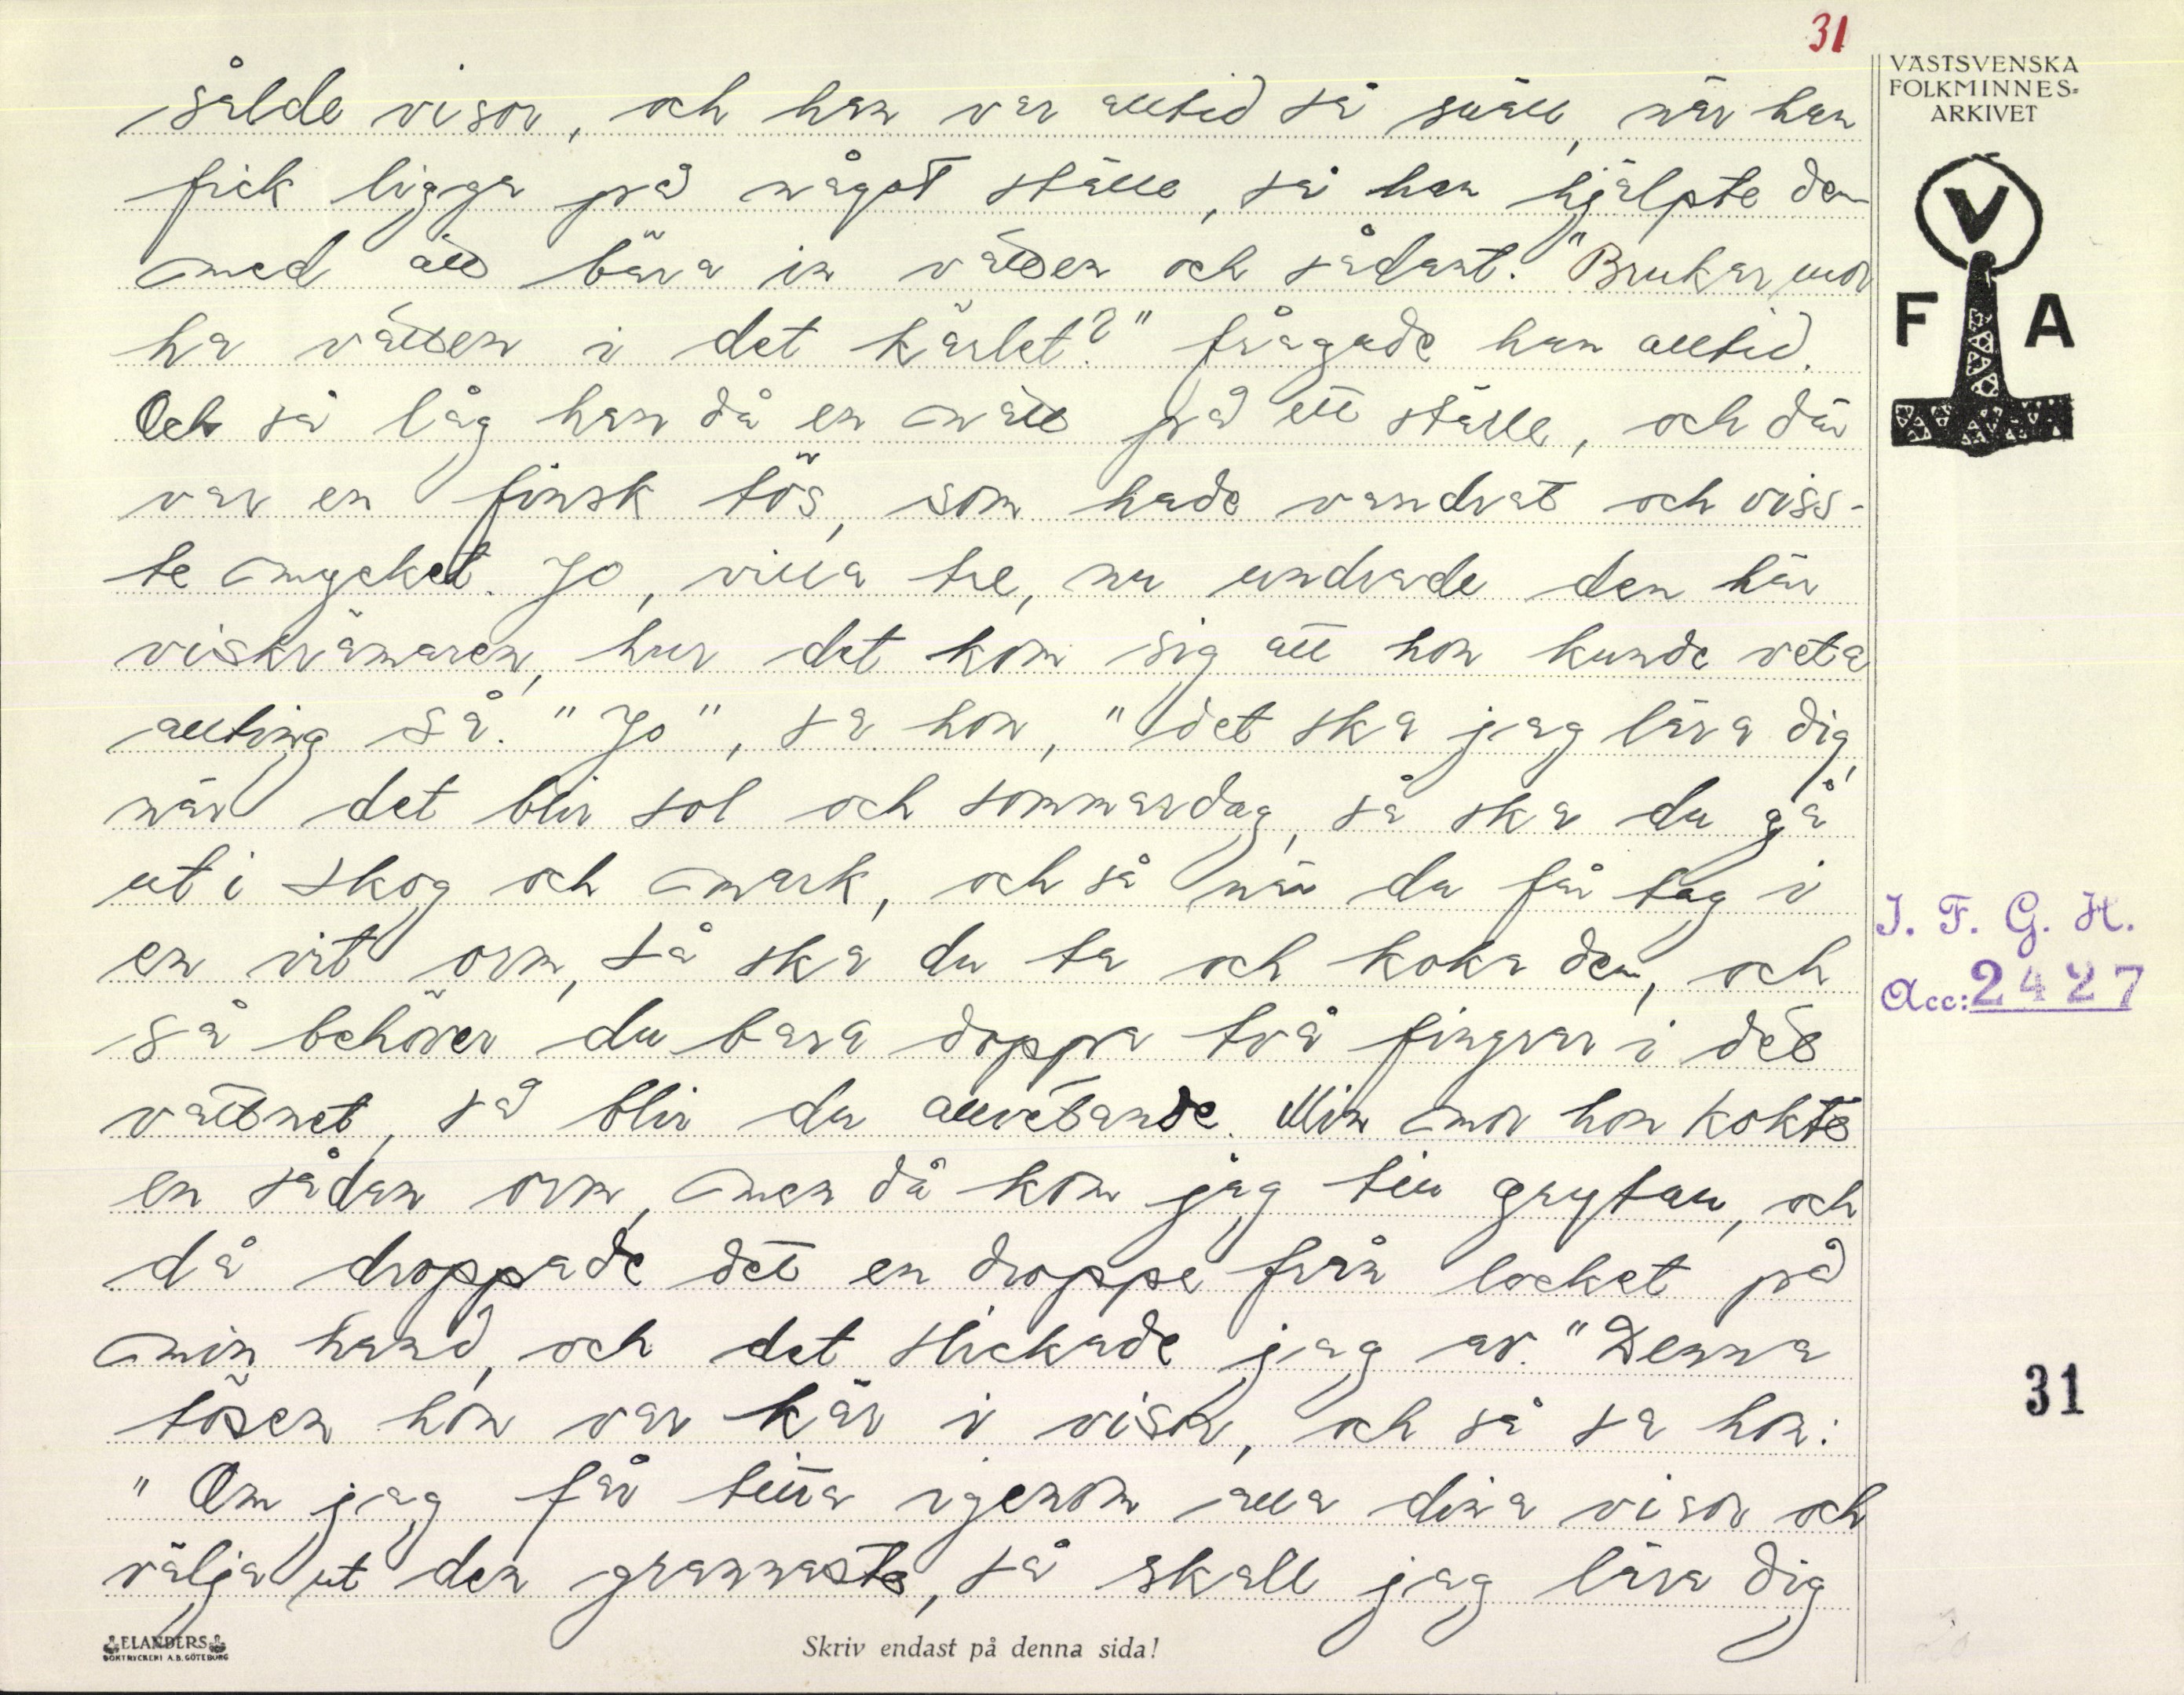 31
VÄSTSVENSKA
FOLKMINNES-
ARKIVET
V
F A
sålde visor, och han var alltid så snäll, när han
fick ligga på något ställe, så han hjälpte dem
med att bära in vatten och sådant. "Brukar mor
ha vatten i det kärlet?" frågade han alltid.
Och så låg han då en natt på ett ställe, och där
var en finsk tös, som hade vandrat och viss-
te mycket. Jo, villa tre, nu undrade den här
viskrämaren, hur det kom sig att hon kunde veta
allting så. "Jo", sa hon, "det ska jag lära dig,
när det blir sol och sommardag, så ska du gå
ut i skog och mark, och så när du får tag i
en vit orm, så ska du ta och koka den, och
så behöver du bara doppa två fingrar i det
vattnet, så blir du allvetande. Min mor hon kokte
en sådan orm, men då kom jag till grytan, och
då droppade det en droppe från locket på
min hand, och det slickade jag av." Denna
tösen hon var kär i visor, och så sa hon:
"Om jag får titta igenom alla dina visor och
välja ut den grannaste, så skall jag lära dig
I. F. G. H.
Acc: 2427
31
ELANDERS
BOKTRYCKERI A.B. GÖTEBORG
Skriv endast på denna sida!